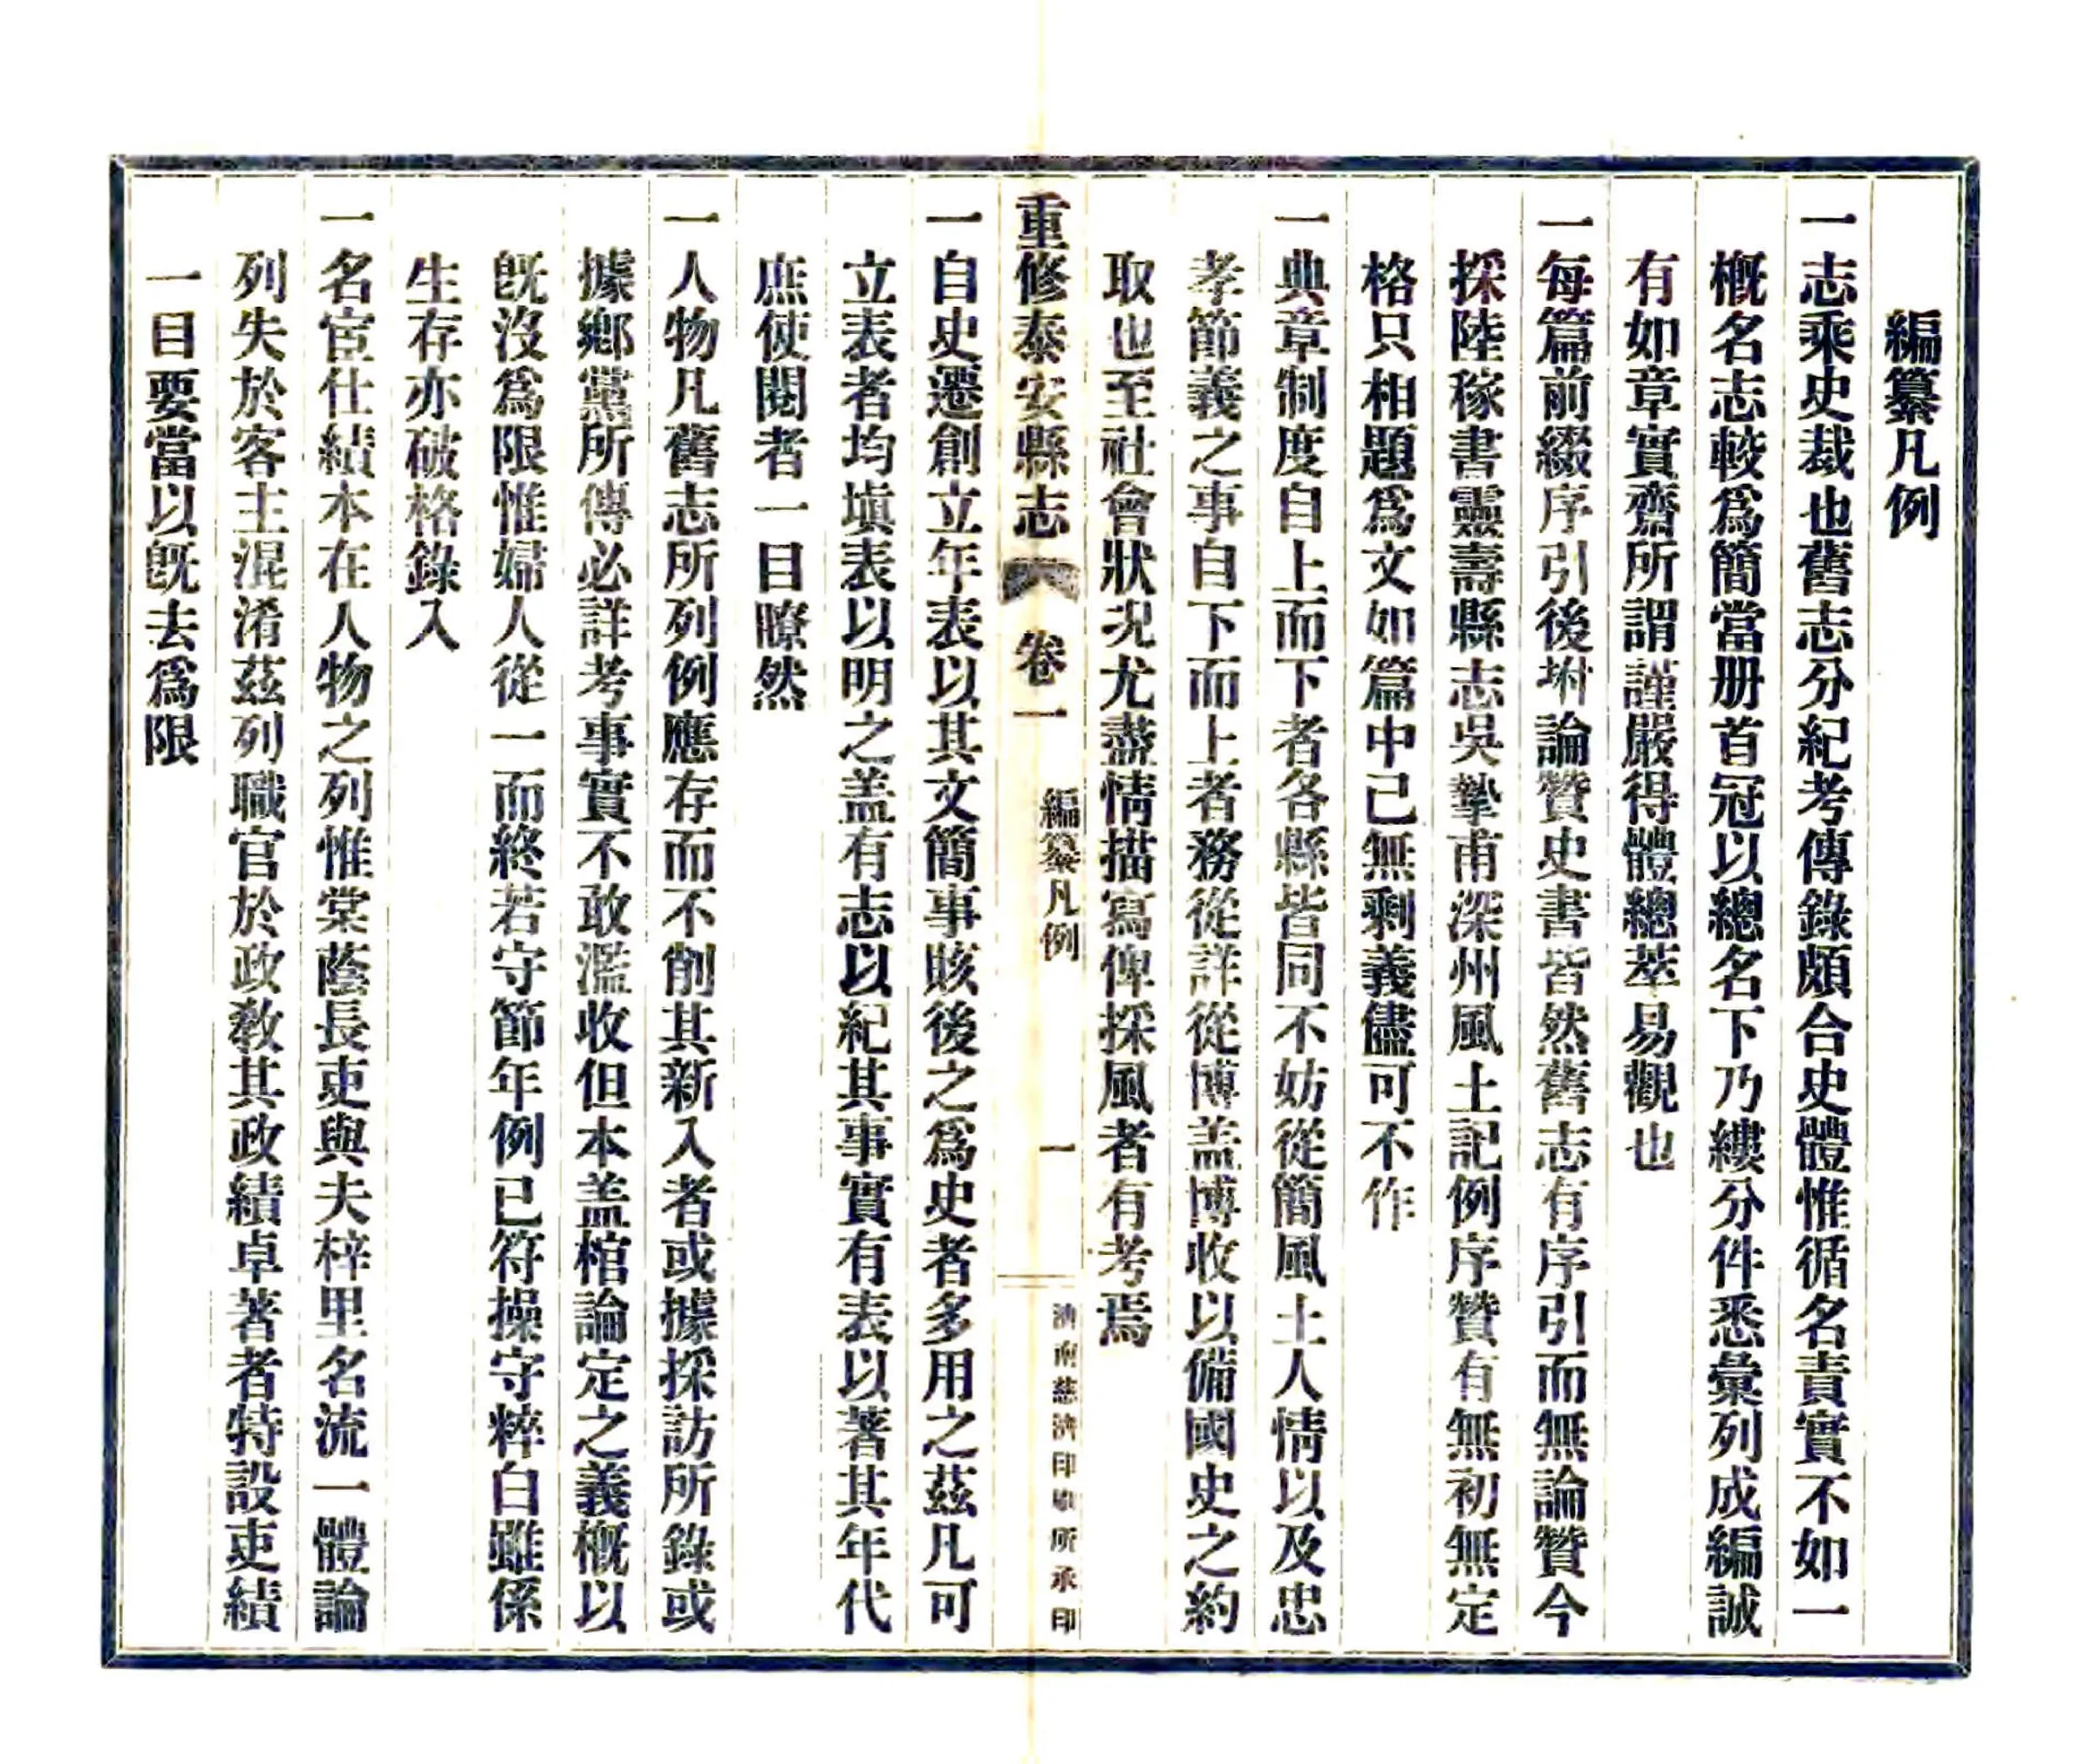 編纂凡例
一志乘史裁也舊志分紀考傳錄頗合史體惟循名責實不如一
概名志較爲簡當册首冠以總名下乃縷分件悉彙列成編誠
有如章實齋所謂謹嚴得體總萃易觀也
一每篇前綴序引後坿論贊史書皆然舊志有序引而無論贊今
採陸稼書靈壽縣志吳摯甫深州風土記例序贊有無初無定
格只相題爲文如篇中已無剩義儘可不作
一典章制度自上而下者各縣皆同不妨從簡風土人情以及忠
孝節義之事自下而上者務從詳從博盖博收以備國史之約
取也至社會狀况尤盡情描寫俾採風者有考焉
重修泰安縣志 卷一 編纂凡例 一 濟南慈濟印刷所承印
一自史遷創立年表以其文簡事賅後之爲史者多用之茲凡可
立表者均塡表以明之盖有志以紀其事實有表以著其年代
庶使閱者一目瞭然
一人物凡舊志所列例應存而不削其新入者或據採訪所錄或
據鄉黨所傳必詳考事實不敢濫收但本盖棺論定之義概以
旣沒爲限惟婦人從一而終若守節年例已符操守粹白雖係
生存亦破格錄入
一名宦仕績本在人物之列惟棠蔭長吏與夫梓里名流一體論
列失於客主混淆茲列職官於政教其政績卓著者特設吏績
一目要當以旣去爲限